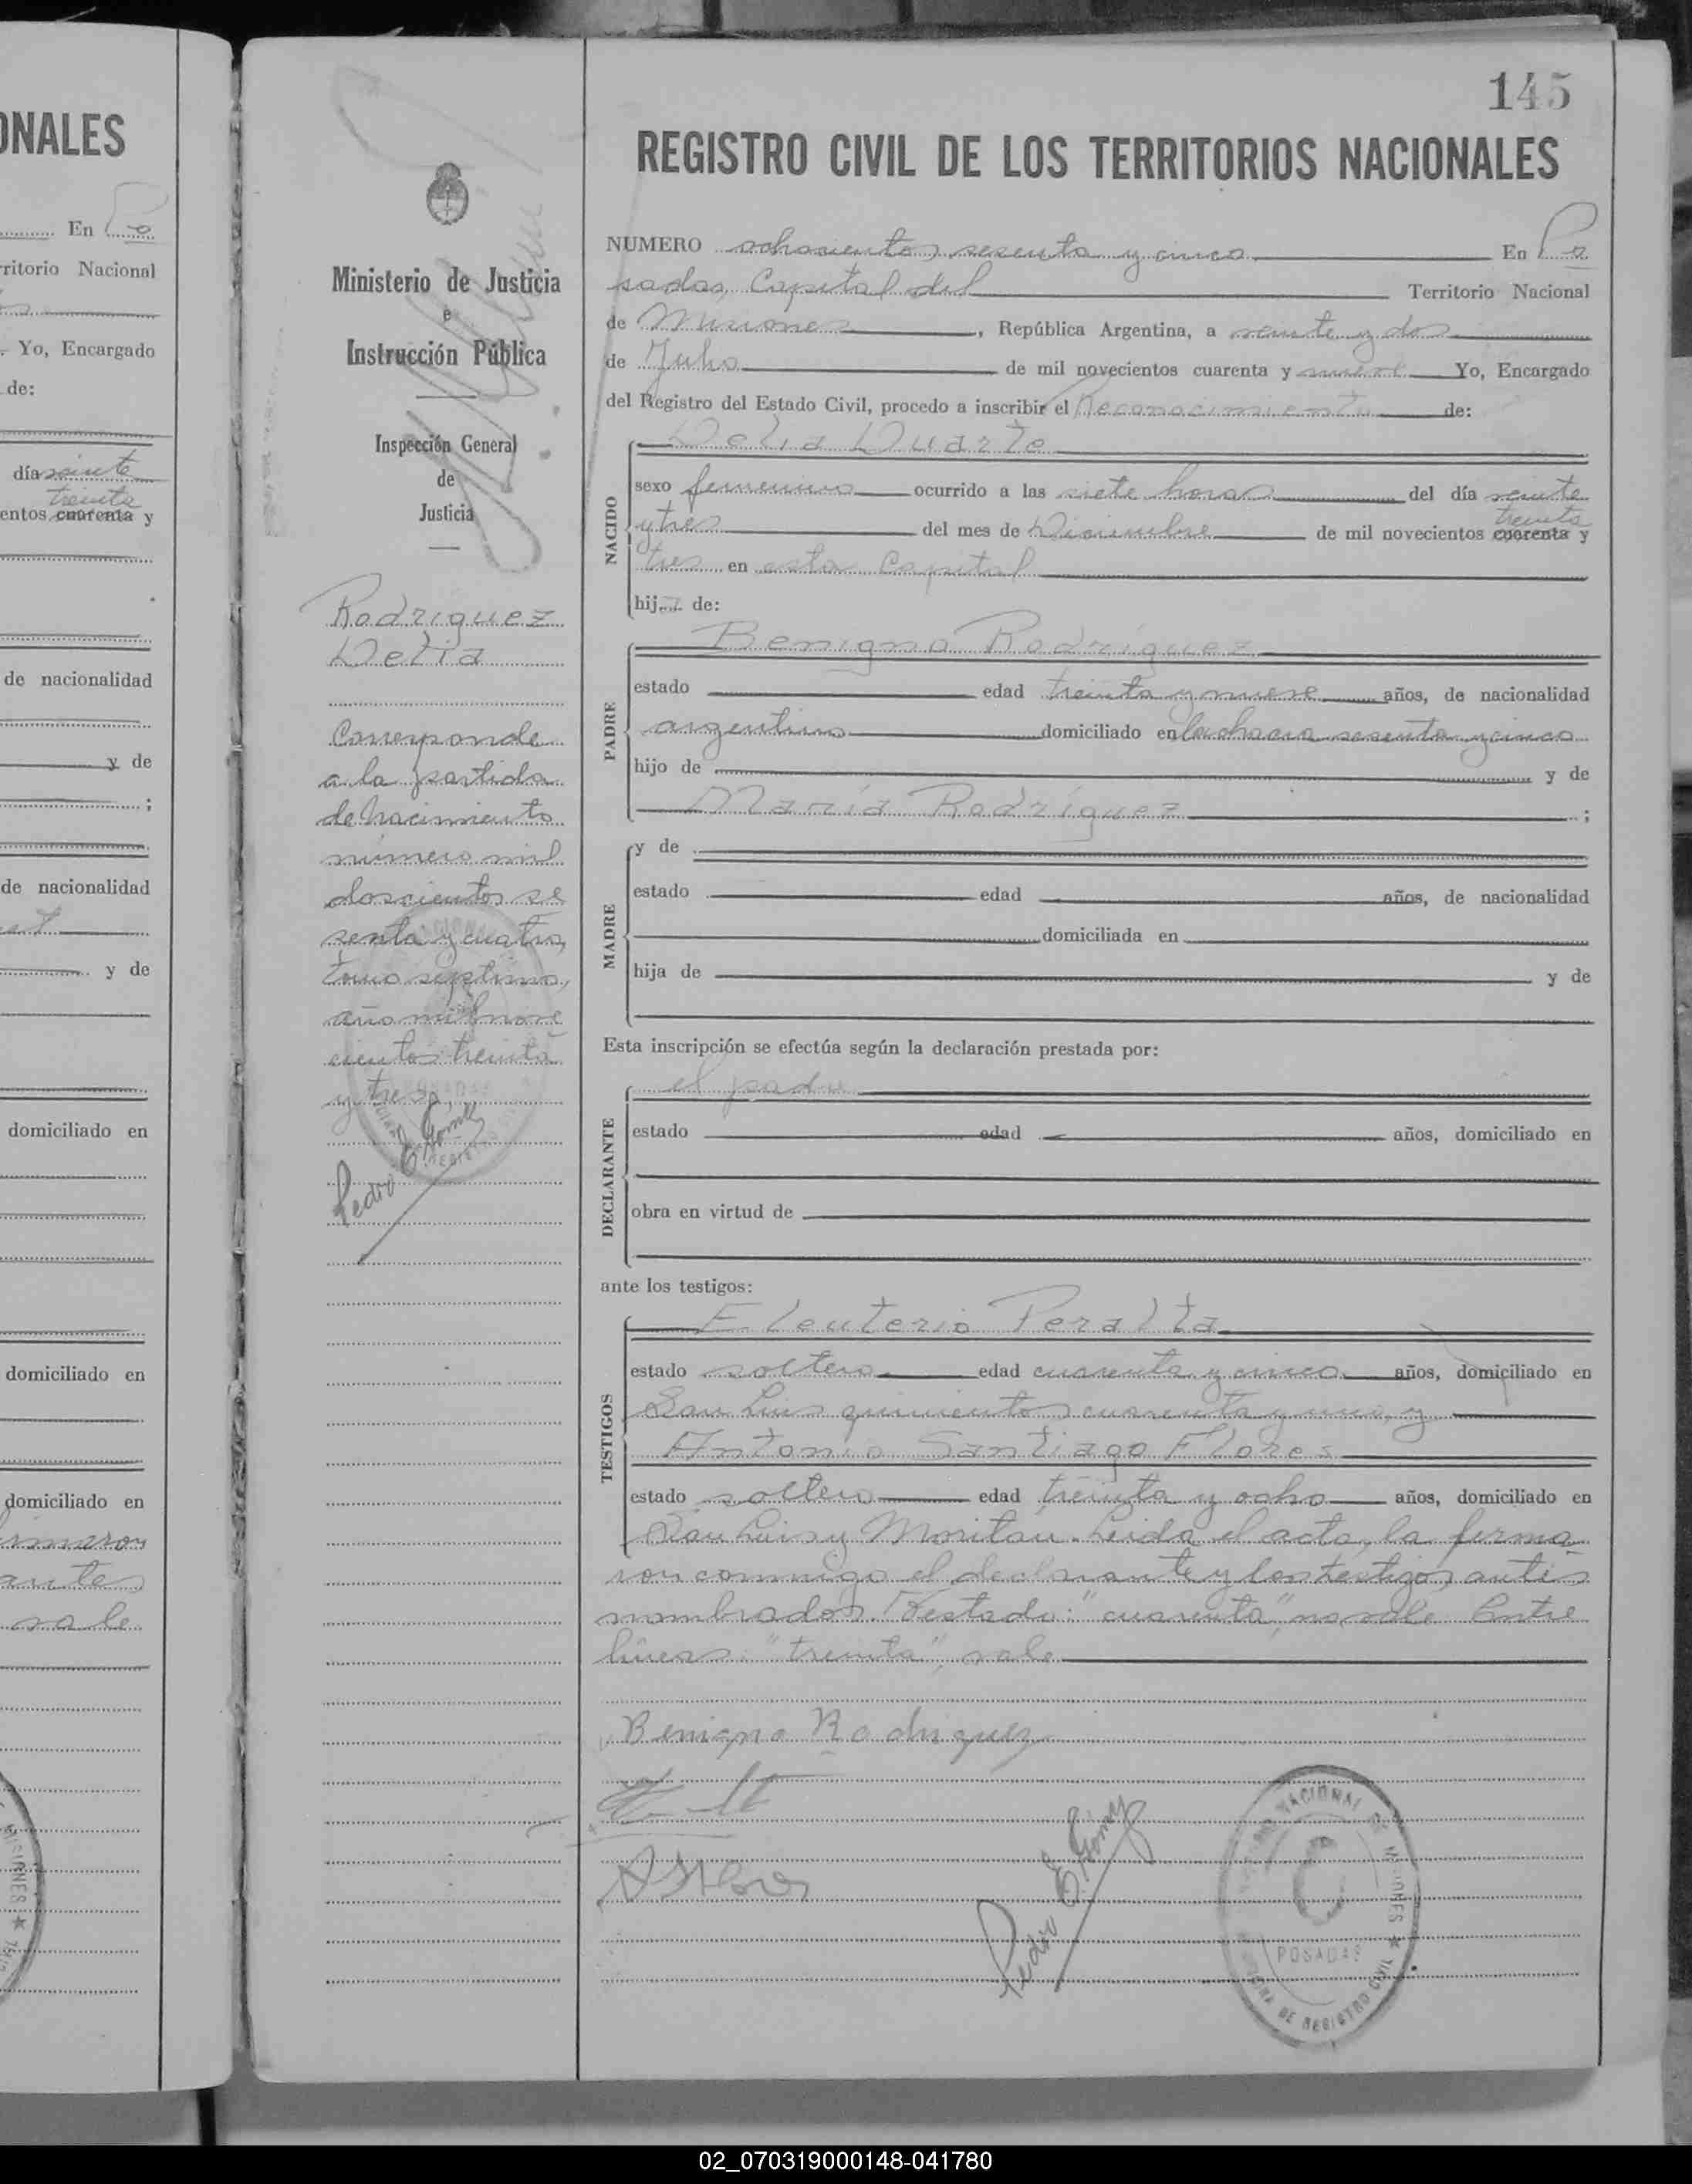 ONALES
En Po
rritorio Nacional
. Yo, Encargado
de:
día veinte
treinta
entos cuarenta y
de nacionalidad
y de
;
de nacionalidad
y de
domiciliado en
domiciliado en
domiciliado en
firmaron
antes
vale
MISIONES ★
145
REGISTRO CIVIL DE LOS TERRITORIOS NACIONALES
Ministerio de Justicia
e
Instrucción Pública
Inspección General
de
Justicia
Rodríguez
Delia
Corresponde
a la partida
de nacimiento
número mil
doscientos se
senta y cuatro,
tomo septimo,
año mil nove
cientos treinta
y tres.
Pedro E. Gómez
NUMERO ochocientos sesenta y cinco En Po
sadas, Capital del Territorio Nacional
de Misiones, República Argentina, a veinte y dos
de Julio de mil novecientos cuarenta y nueve Yo, Encargado
del Registro del Estado Civil, procedo a inscribir el Reconocimiento de:
NACIDO
Delia Duarte
sexo femenino ocurrido a las siete horas del día veinte
treinta
y tres del mes de Diciembre de mil novecientos cuarenta y
tres en esta Capital
hija de:
PADRE
Benigno Rodríguez
estado edad treinta y nueve años, de nacionalidad
argentino domiciliado en la chacra sesenta y cinco
hijo de y de
María Rodríguez ;
MADRE
y de
estado edad años, de nacionalidad
domiciliada en
hija de y de
Esta inscripción se efectúa según la declaración prestada por:
DECLARANTE
el padre
estado edad años, domiciliado en
obra en virtud de
ante los testigos:
TESTIGOS
Eleuterio Peralta
estado soltero edad cuarenta y cinco años, domiciliado en
San Luis quinientos cuarenta y uno, y
Antonio Santiago Flores
estado soltero edad treinta y ocho años, domiciliado en
San Luis y Moritán. Leída el acta, la firma
ron conmigo el declarante y los testigos antes
nombrados. Testado: "cuarenta", no vale. Entre
líneas: "treinta", vale.
Benigno Rodriguez
ASFlores
Pedro E. Gómez
NACIONAL DE MISIONES ★
POSADAS
OFICINA DE REGISTRO CIVIL
02_070319000148-041780